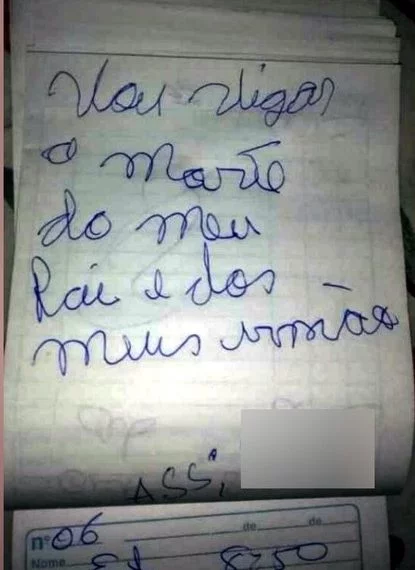 Vou vigar
a morte
do meu
Pai e dos
meus irmão
ASS,
nº 06
de de
Nome 8250